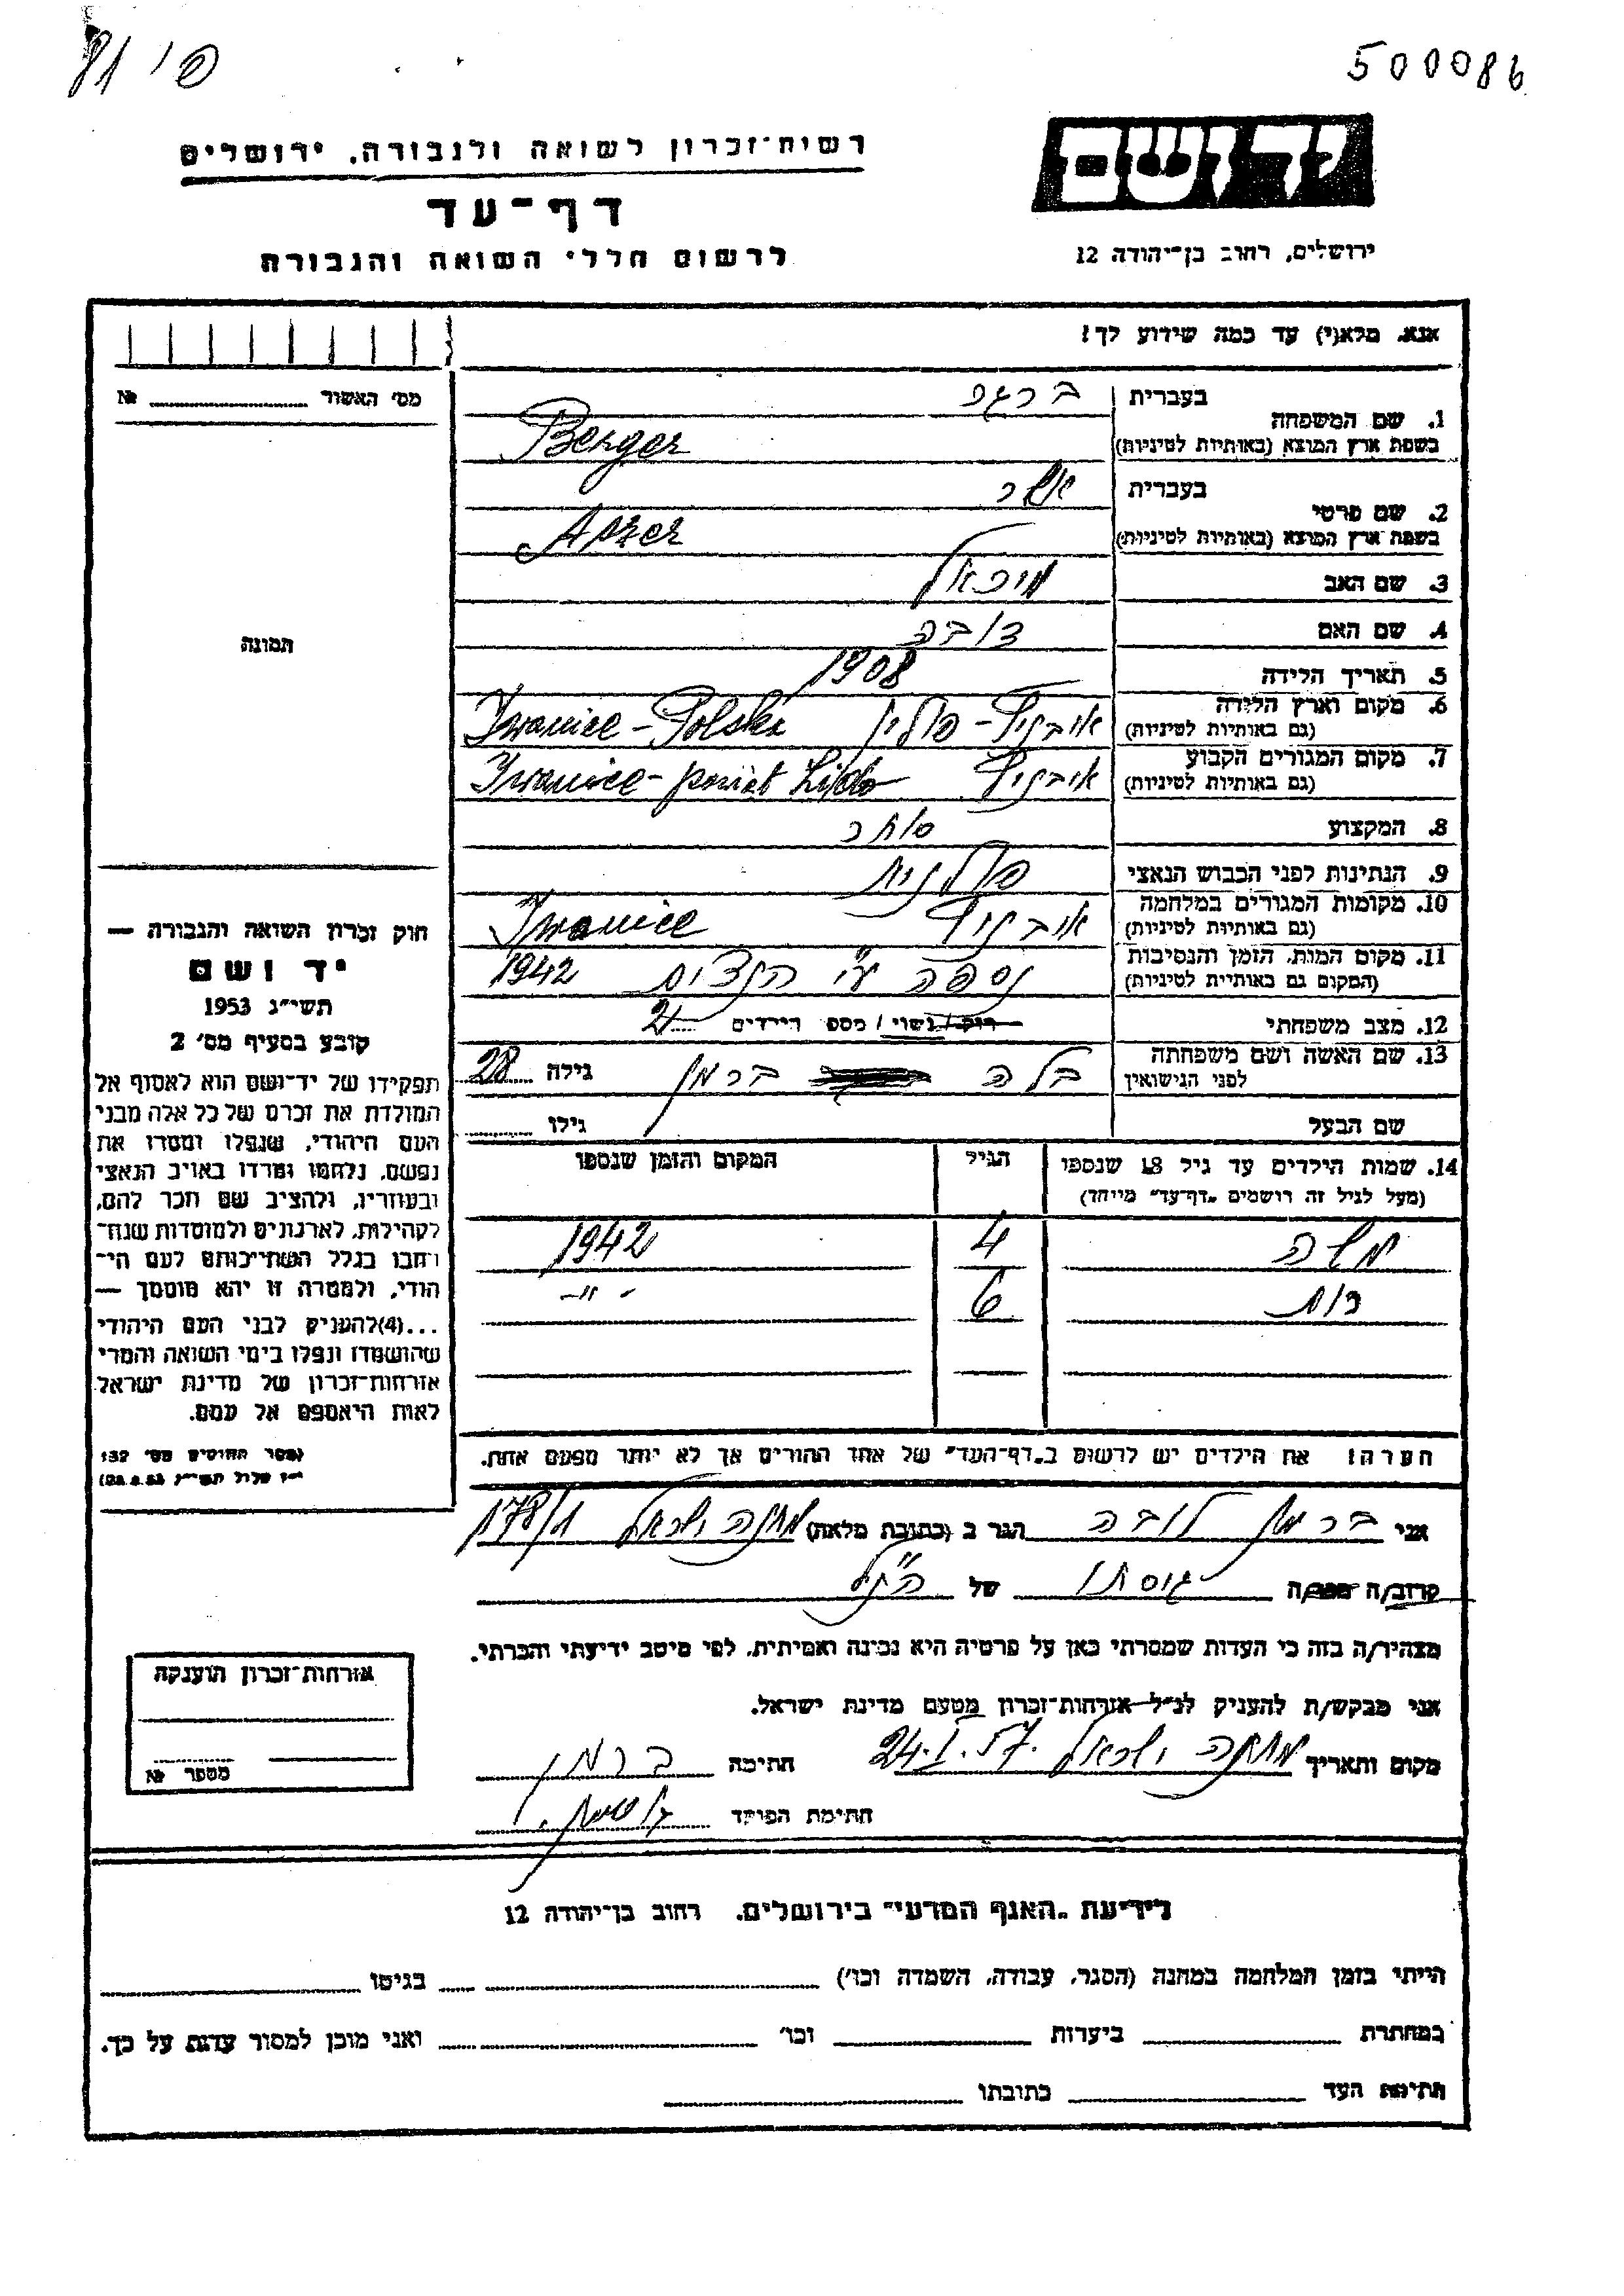 500086
פי 81
יד ושם
ירושלים, רחוב בן־יהודה 12
רשות־זכרון לשואה ולגבורה, ירושלים
דף־עד
לרשום חללי השואה והגבורה
אנא, מלא(י) עד כמה שידוע לך!
מס׳ האשור № 
1. שם המשפחה
בעברית ברגר
בשפת ארץ המוצא (באותיות לטיניות) Berger
2. שם פרטי
בעברית אשר
בשפת ארץ המוצא (באותיות לטיניות) Aszer
3. שם האב מיכאל
4. שם האם דובה
5. תאריך הלידה 1908
6. מקום וארץ הלידה
(גם באותיות לטיניות) אובניץ - פולין Iwanice - Polska
7. מקום המגורים הקבוע
(גם באותיות לטיניות) איבניץ Iwanice - powiat
8. המקצוע סוחר
9. הנתינות לפני הכבוש הנאצי פולנית
10. מקומות המגורים במלחמה
(גם באותיות לטיניות) איבניץ Iwanice
11. מקום המות, הזמן והנסיבות
(המקום גם באותיית לטיניות) נספה ע״י הנצים 1942
12. מצב משפחתי רוק / נשוי / מספ הילדים 2
13. שם האשה ושם משפחתה
לפני הנישואין בלה ברמן גילה 28
שם הבעל גילו
14. שמות הילדים עד גיל 18 שנספו הגיל המקום והזמן שנספו
(מעל לגיל זה רושמים „דף־עד״ מייחד)
משה 4 1942
רות 6 - " -
הערה: את הילדים יש לרשום ב„דף־העד״ של אחד ההורים אך לא יותר מפעם אחת.
תמונה
חוק זכרון השואה והגבורה —
יד ושם
תשי״ג 1953
קובע בסעיף מס׳ 2
תפקידו של יד־ושם הוא לאסוף אל
המולדת את זכרם של כל אלה מבני
העם היהודי, שנפלו ומסרו את
נפשם, נלחמו ומרדו באויב הנאצי
ובעוזריו, ולהציב שם וזכר להם,
לקהילות, לארגונים ולמוסדות שנח־
רחבו בגלל השתייכותם לעם הי־
הודי, ולמטרה זו יהא מוסמך —
...(4)להעניק לבני העם היהודי
שהושמדו ונפלו בימי השואה והמרי
אזרחות־זכרון של מדינת ישראל
לאות היאספם אל עמם.
(ספר החוקים מס׳ 132
אני ברמן לובה הגר ב (כתובת מלאה) מחנה ישראל 178/1
קרוב/ה מכר/ה גיסתו של הנ״ל
מצהיר/ה בזה כי העדות שמסרתי כאן על פרטיה היא נכונה ואמיתית, לפי מיטב ידיעתי והכרתי.
אני מבקש/ת להעניק לנ״ל אזרחות־זכרון מטעם מדינת ישראל.
מקום ותאריך מחנה ישראל 24.I.57. חתימה ברמן
חתימת הפוקד
אזרחות־זכרון הוענקה
מספר №
לידיעת „האגף המדעי״ בירושלים, רחוב בן־יהודה 12
הייתי בזמן המלחמה במחנה (הסגר, עבודה, השמדה וכו׳) בגיטו
במחתרת ביערות וכו׳ ואני מוכן למסור עדות על כך.
חתימת העד כתובתו